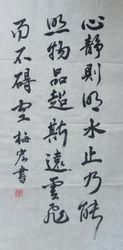 心靜則明水止乃能
照物品超斯遠雲飛
而不礙空 梅宏書